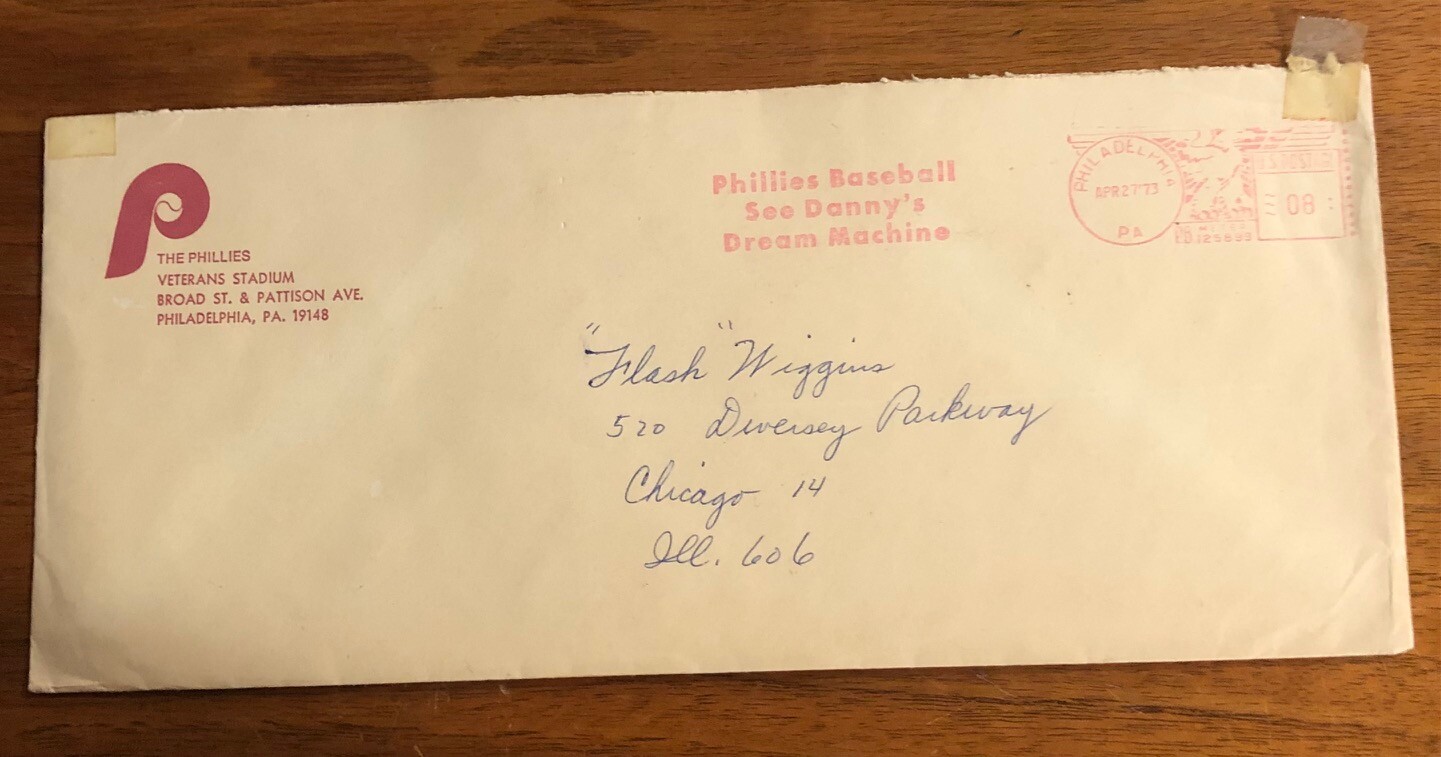 THE PHILLIES
VETERANS STADIUM
BROAD ST. & PATTISON AVE.
PHILADELPHIA, PA. 19148
Phillies Baseball
See Danny's
Dream Machine
PHILADELPHIA
APR 27 '73
PA
U.S. POSTAGE
08
"Flash" Wiggins
520 Diversey Parkway
Chicago 14
Ill. 606